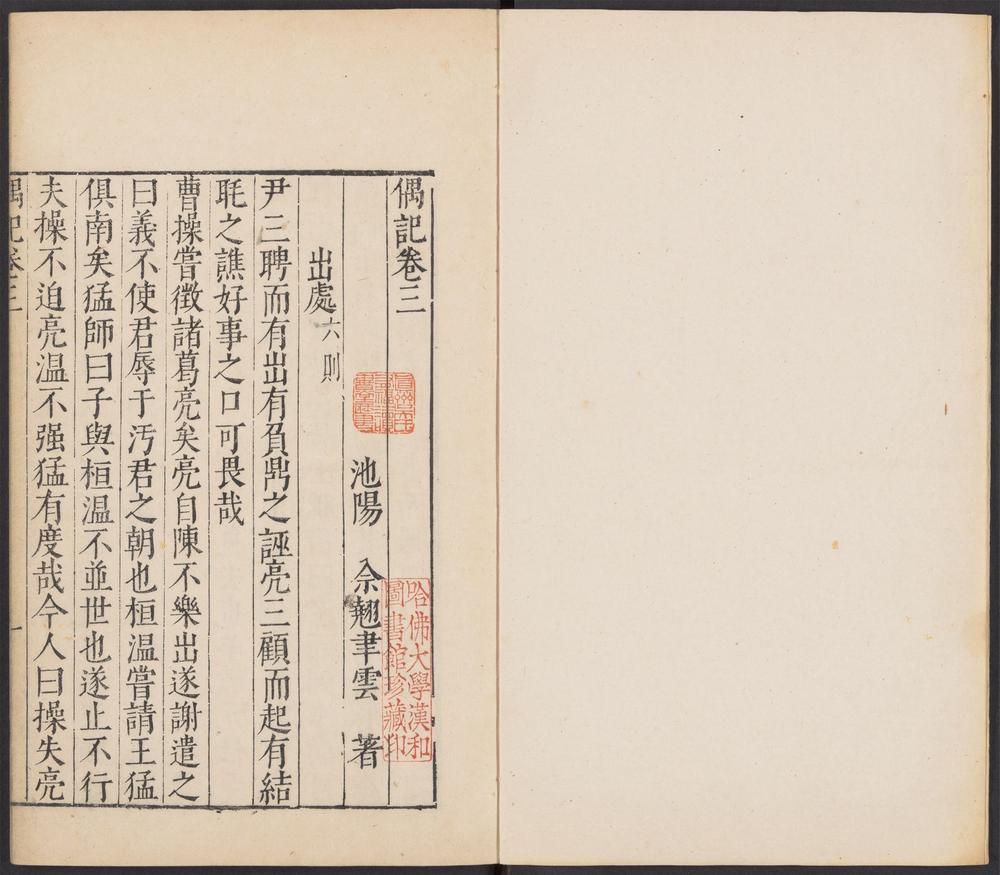 偶記卷三
池陽 佘翹聿雲 著
出處六則
尹三聘而有出有負鼎之誣亮三顧而起有結
毦之譙好事之口可畏哉
曹操嘗徵諸葛亮矣亮自陳不樂出遂謝遣之
曰義不使君辱于汚君之朝也桓温嘗請王猛
俱南矣猛師曰子與桓温不並世也遂止不行
夫操不迫亮温不强猛有度哉今人曰操失亮
偶記卷三 一
哈佛大學漢和
圖書館珍藏印